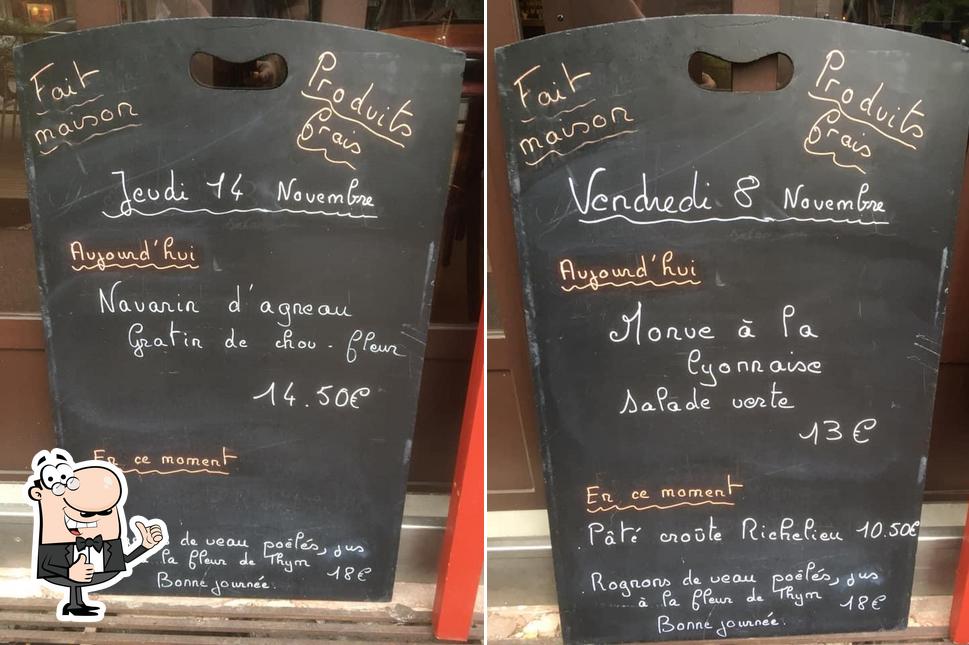 Fait
maison
Produits
frais
Jeudi 14 Novembre
Aujourd'hui
Navarin d'agneau
Gratin de chou-fleur
14.50€
En ce moment
de veau poêlés, jus
la fleur de Thym
18€
Bonne journée.
Fait
maison
Produits
frais
Vendredi 8 Novembre
Aujourd'hui
Morue à la
lyonnaise
salade verte
13€
En ce moment
Pâté croûte Richelieu 10.50€
Rognons de veau poêlés, jus
à la fleur de Thym
18€
Bonne journée.